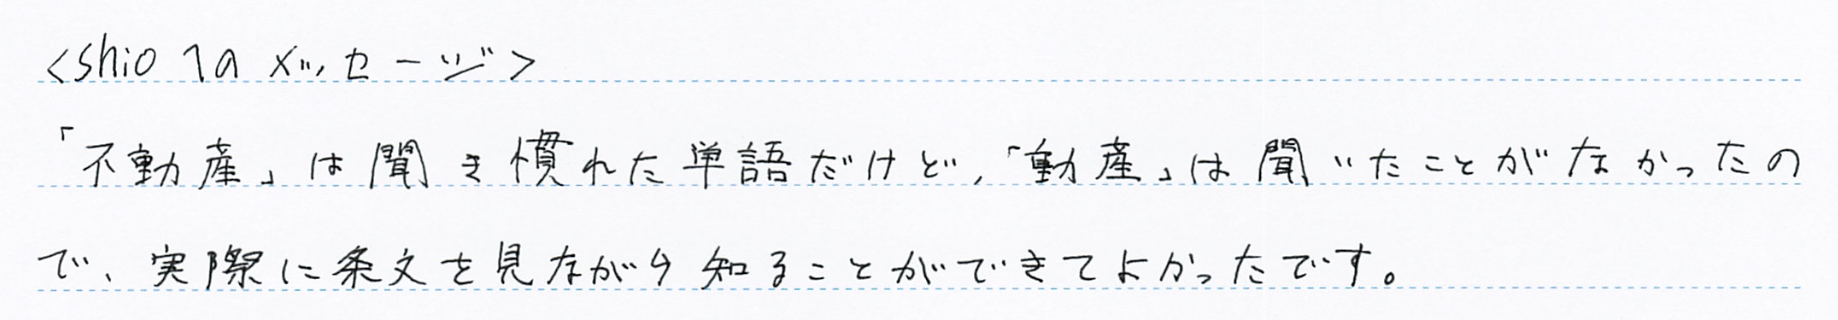 <shioへのメッセージ>
「不動産」は聞き慣れた単語だけど、「動産」は聞いたことがなかったの
で、実際に条文を見ながら知ることができてよかったです。